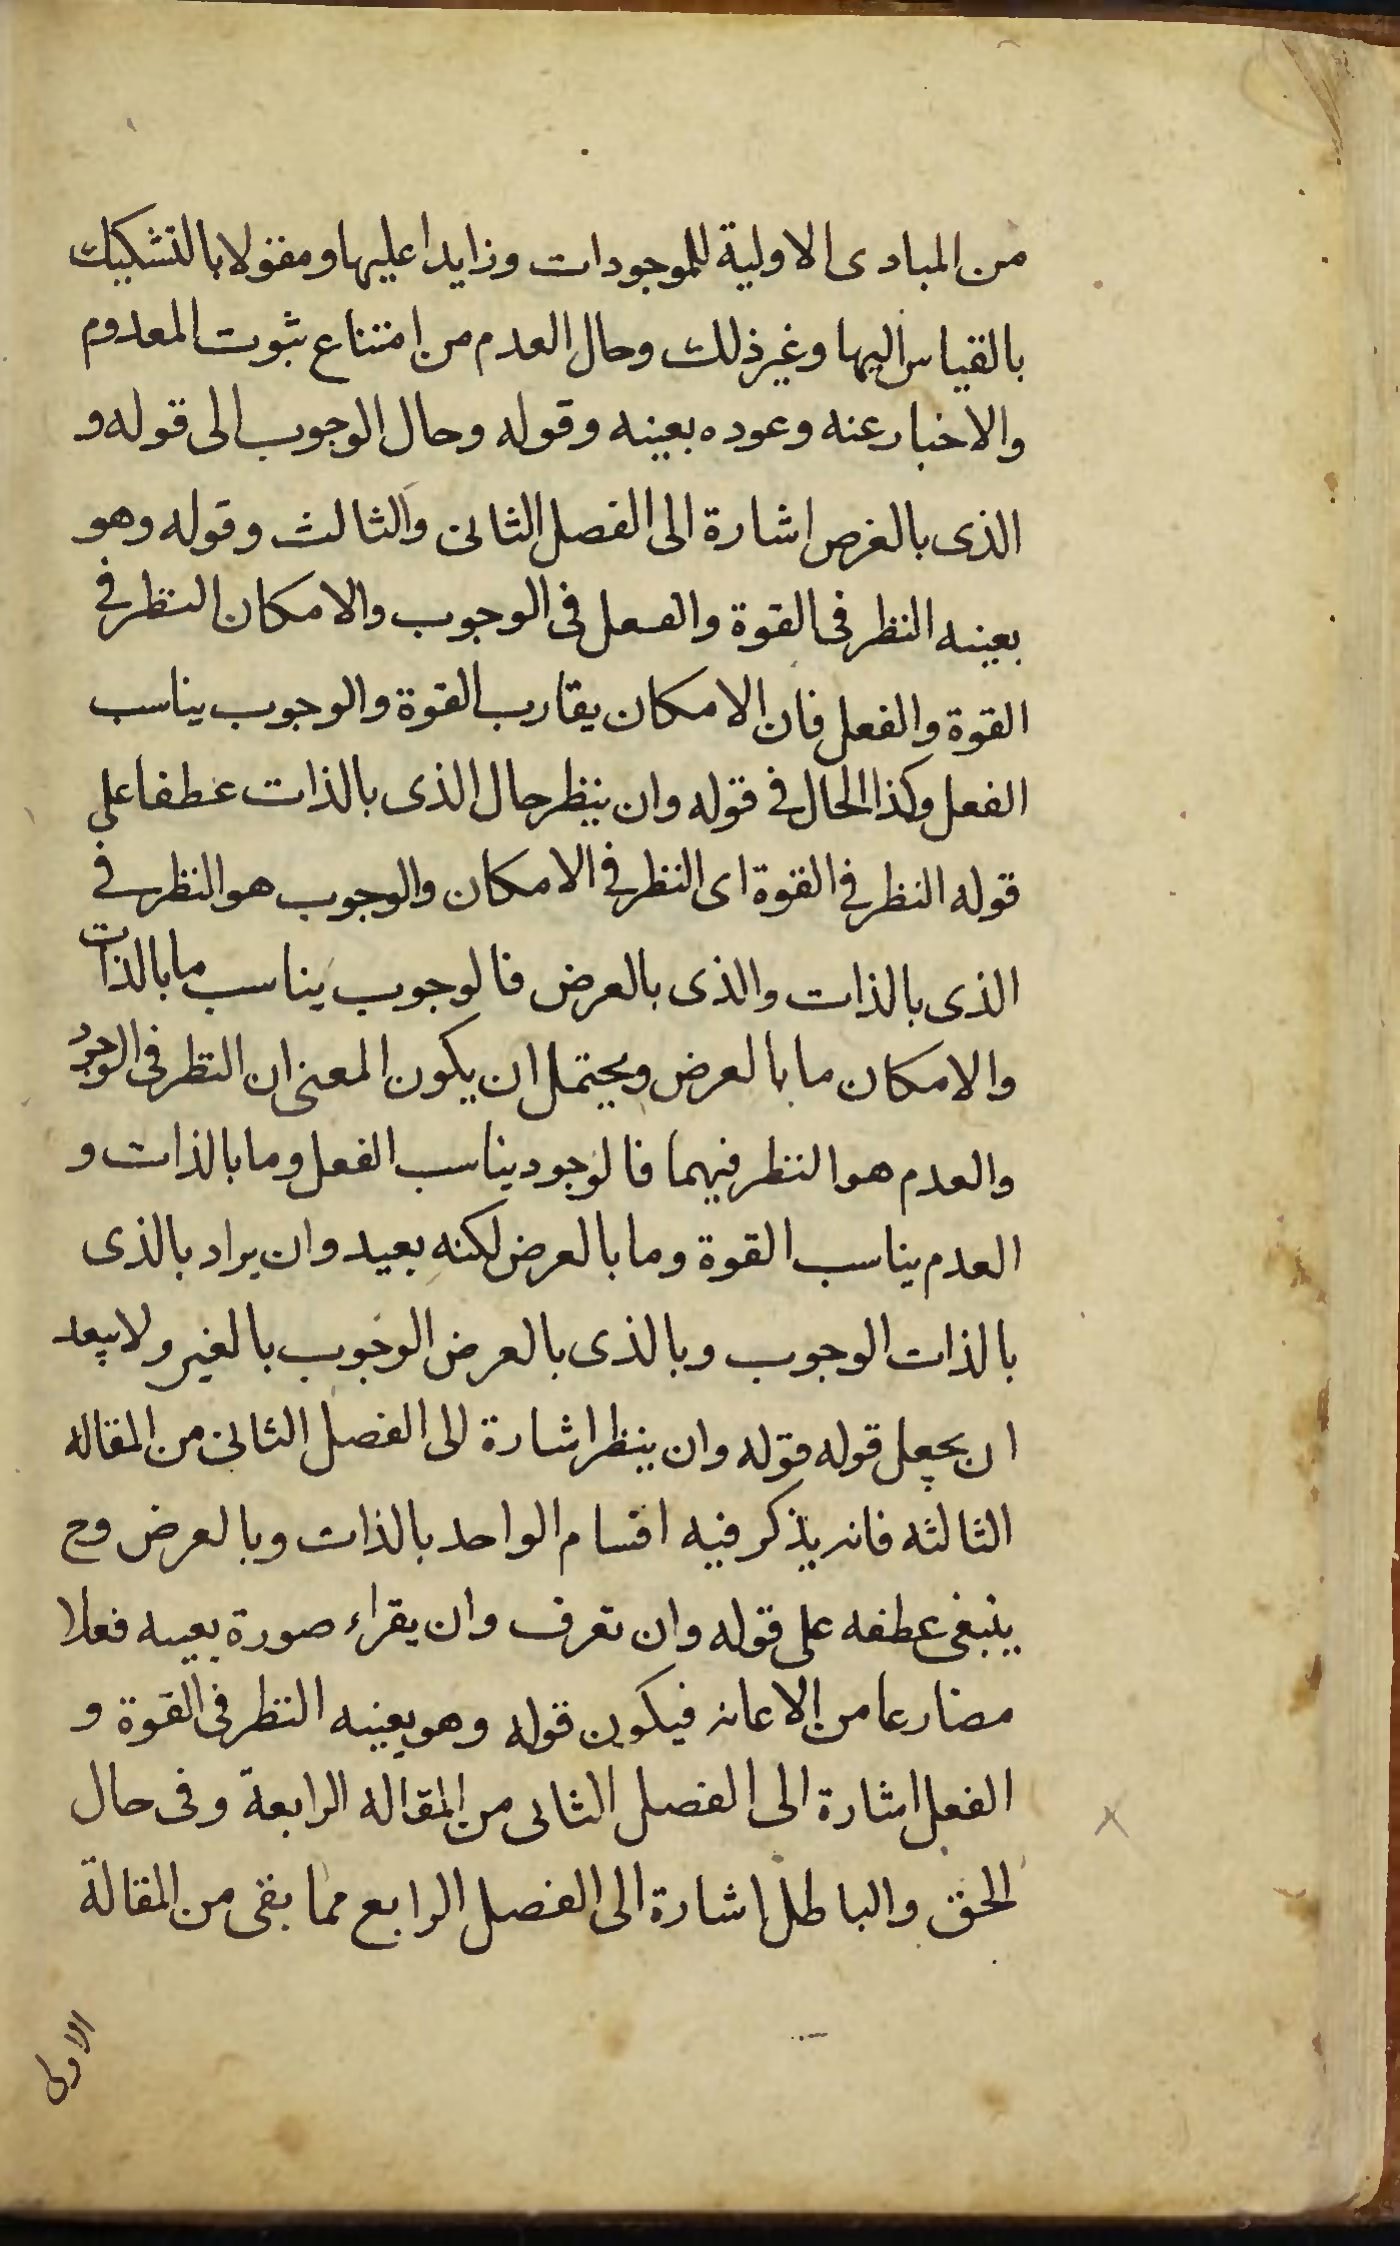 من المبادى الاولية للموجودات وزايدا عليها ومقولا بالتشكيك
بالقياس اليها وغير ذلك وحال العدم من امتناع ثبوت المعدوم
والاخبار عنه وعوده بعينه وقوله وحال الوجوب الى قوله و
الذى بالغرض اشارة الى الفصل الثانى والثالث وقوله وهو
بعينه النظر فى القوة والفعل فى الوجوب والامكان النظر فى
القوة والفعل فان الامكان يقارب القوة والوجوب يناسب
الفعل وكذا الحال فى قوله وان ينظر حال الذى بالذات عطفا على
قوله النظر فى القوة اى النظر فى الامكان والوجوب هو النظر فى
الذى بالذات والذى بالعرض فالوجوب يناسب ما بالذات
والامكان ما بالعرض ويحتمل ان يكون المعنى ان النظر فى الوجود
والعدم هو النظر فيهما فالوجود يناسب الفعل وما بالذات و
العدم يناسب القوة وما بالعرض لكنه بعيد وان يراد بالذى
بالذات الوجوب وبالذى بالعرض الوجوب بالغير ولا يبعد
ان يجعل قوله قوله وان ينظر اشارة الى الفصل الثانى من المقاله
الثالثه فانه يذكر فيه اقسام الواحد بالذات وبالعرض وح
ينبغى عطفه على قوله وان تعرف وان يقراء صورة بعينه فعلا
مضارعا من الاعانه فيكون قوله وهو بعينه النظر فى القوة و
الفعل اشارة الى الفصل الثانى من المقاله الرابعة وفى حال
الحق والباطل اشارة الى الفصل الرابع مما بقى من المقالة
الاولى